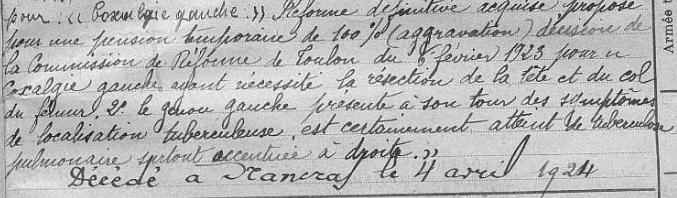 pour : « Coxalgie gauche. » Réforme définitive acquise proposé
pour une pension temporaire de 100% (aggravation) décision de
la Commission de Réforme de Toulon du 6 février 1923 pour «
coxalgie gauche ayant nécessité la résection de la tête et du col
du fémur. 2° le genou gauche présente à son tour des symptômes
de localisation tuberculeuse, est certainement atteint de tuberculose
pulmonaire surtout accentuée à droite. »
Décédé a Nancras le 4 avril 1924
Armée t